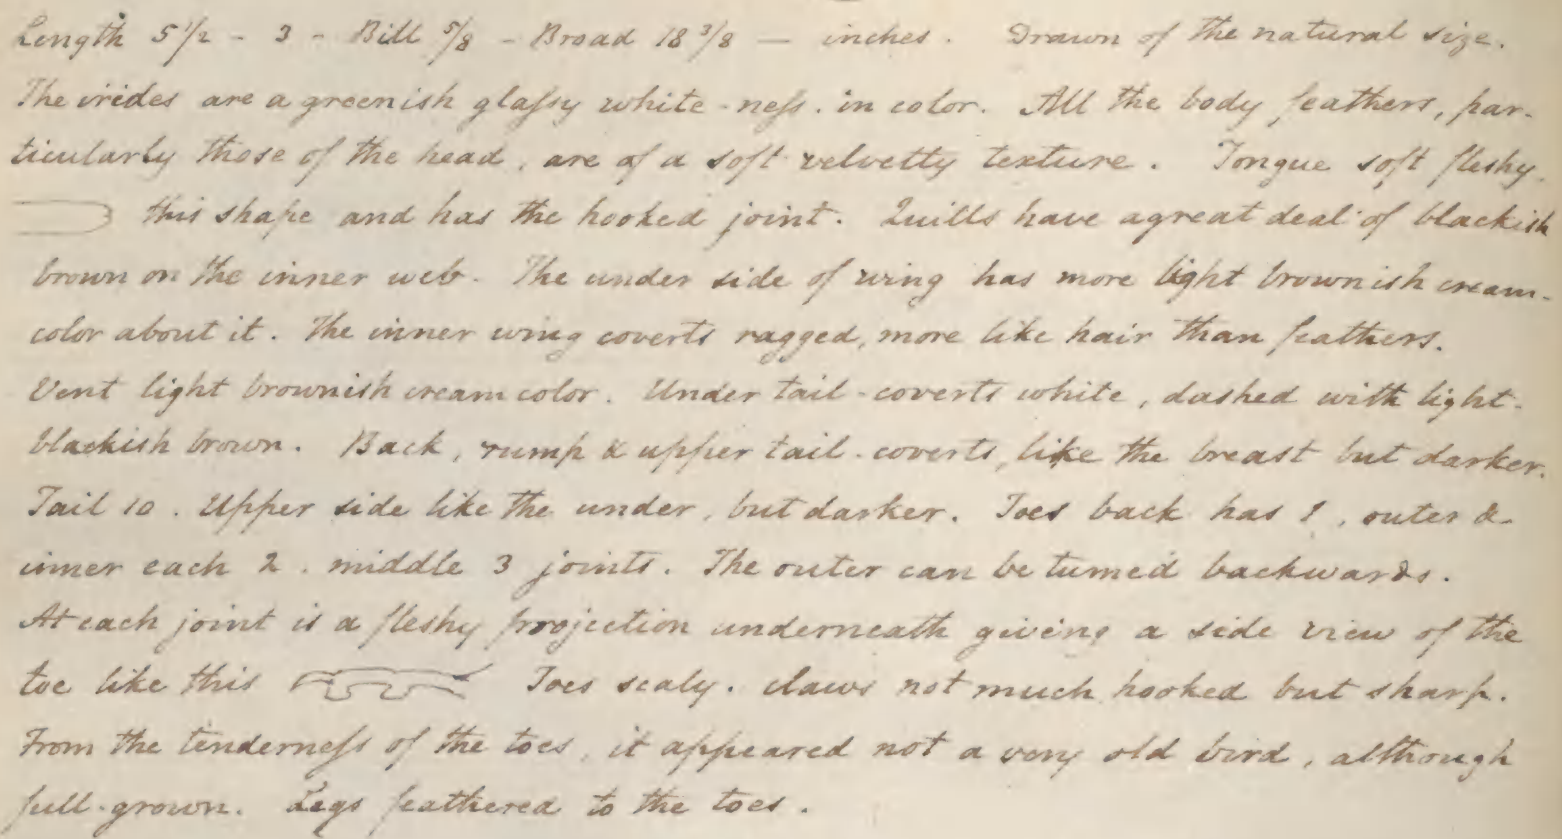 Length 5 1/2 - 3 - Bill 5/8 - Broad 18 3/8 — inches. Drawn of the natural size.
The irides are a greenish glaſsy white-neſs. in color. All the body feathers, par-
ticularly those of the head, are of a soft velvetty texture. Tongue soft fleshy
this shape and has the hooked joint. Quills have a great deal of blackish
brown on the inner web. The under side of wing has more light brownish cream-
color about it. The inner wing coverts ragged, more like hair than feathers.
Vent light brownish cream color. Under tail-coverts white, dashed with light-
blackish brown. Back, rump & upper tail-coverts, like the breast but darker.
Tail 10. Upper side like the under, but darker. Toes back has 1, outer &
inner each 2. middle 3 joints. The outer can be turned backwards.
At each joint is a fleshy projection underneath giving a side view of the
toe like this Toes scaly. claws not much hooked but sharp.
From the tenderneſs of the toes, it appeared not a very old bird, although
full-grown. Legs feathered to the toes.